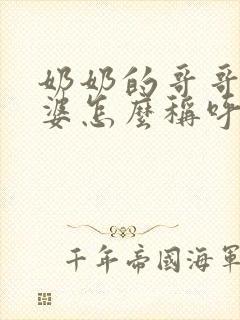 奶奶的哥哥
婆怎麼稱呼
千年帝國海軍